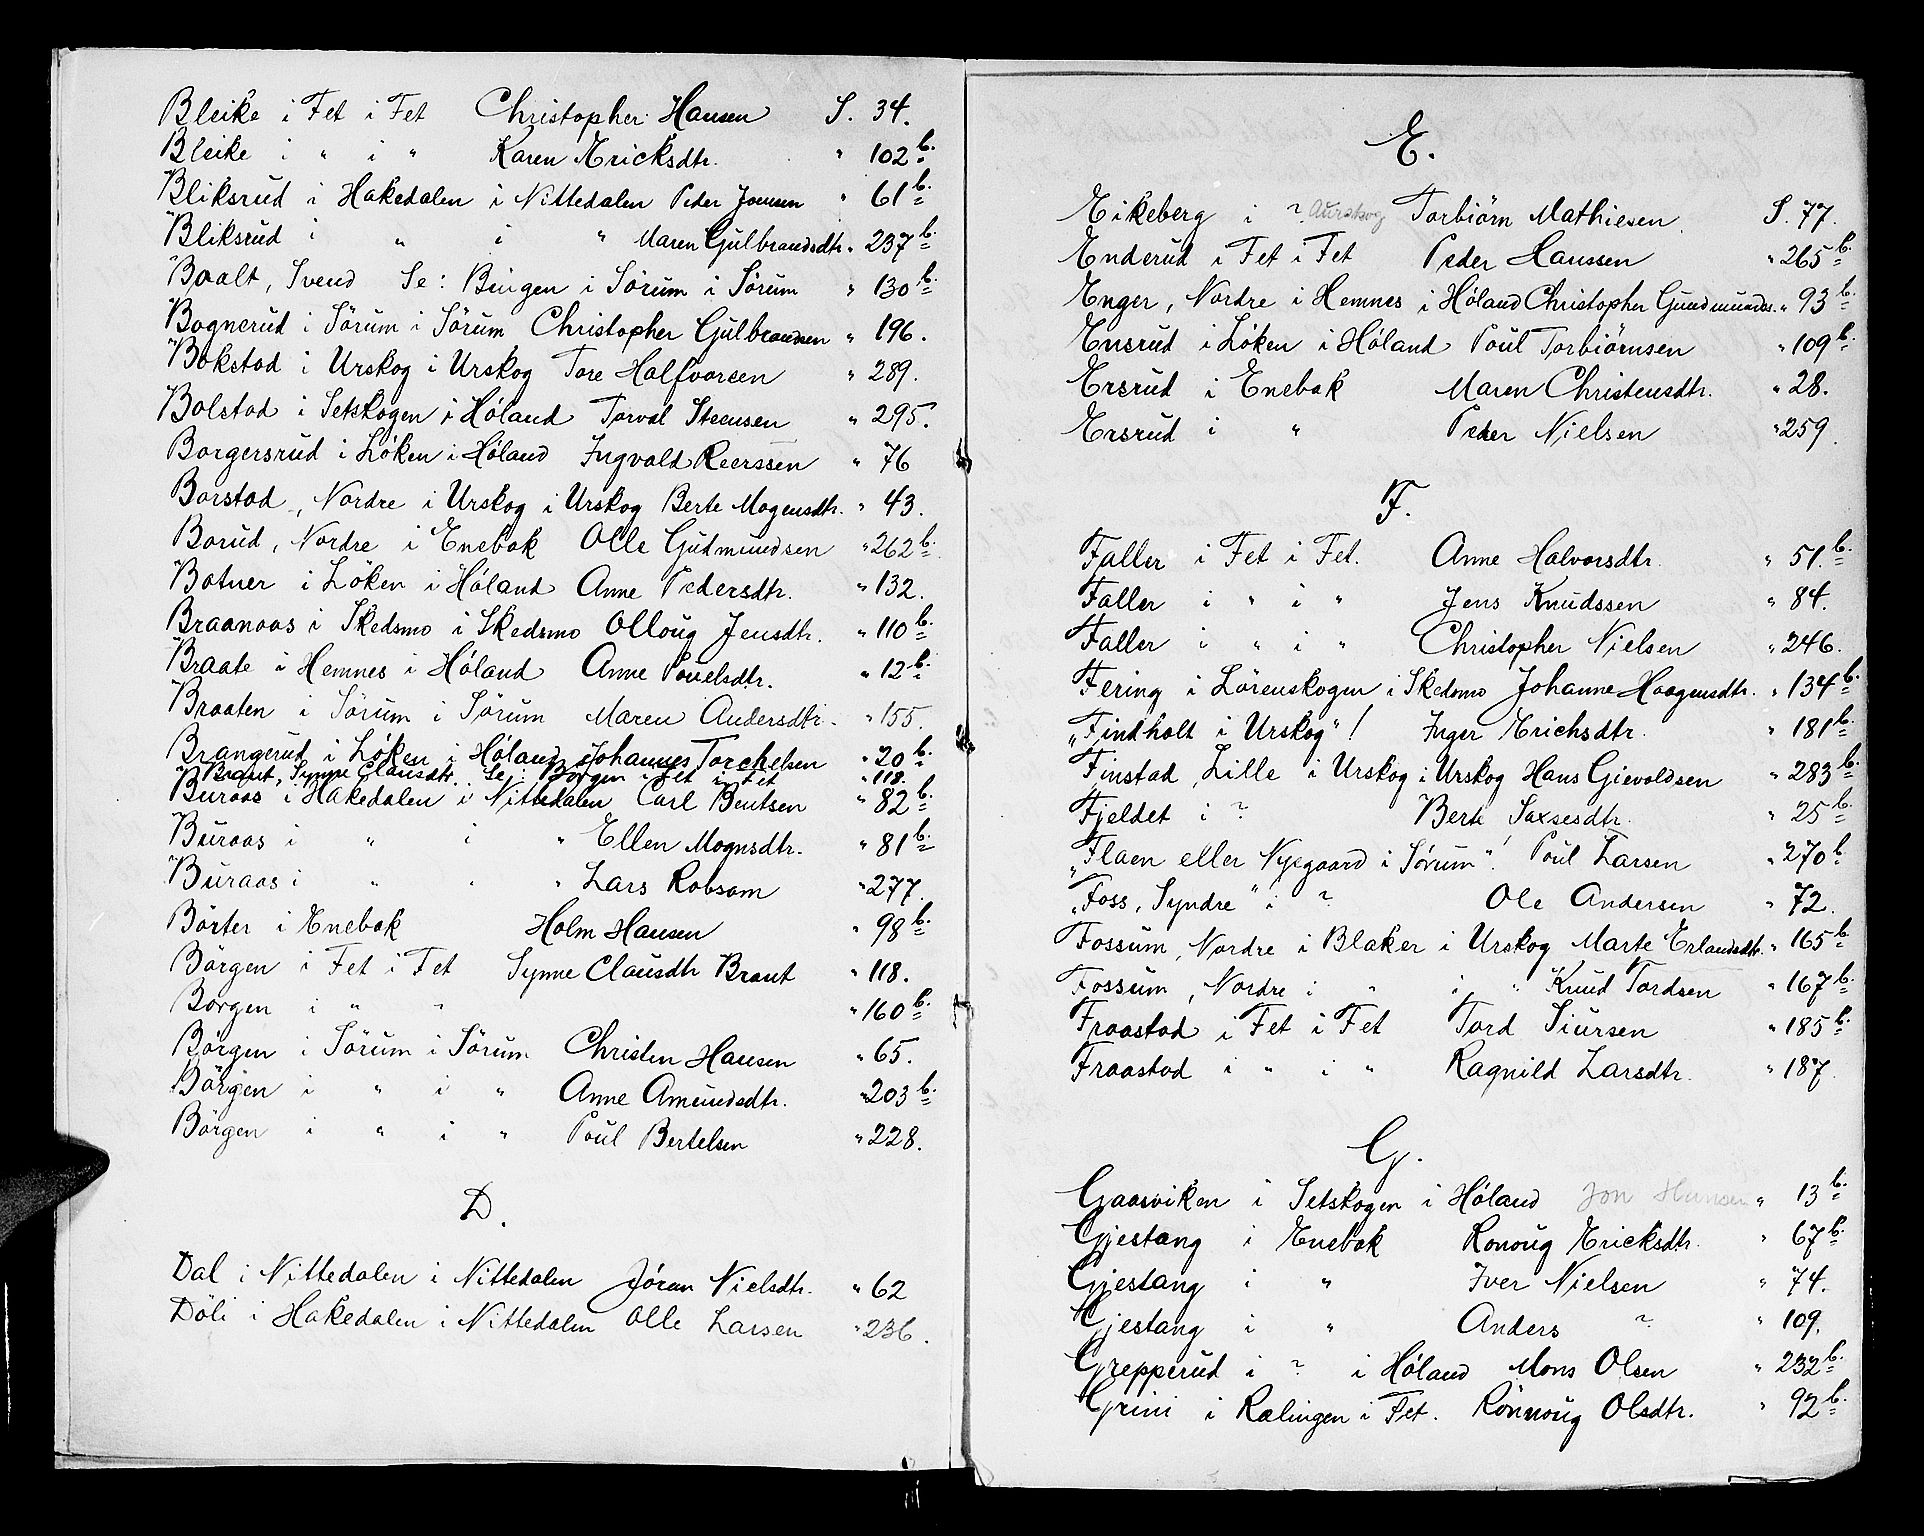 Bleike i Fet i Fet Christopher Hansen S. 34.
Bleike i " i " Karen Ericksdtr. " 102 b.
Bliksrud i Hakedalen i Nittedalen Peder Joensen " 61 b.
Bliksrud i " i " Maren Gulbrandsdtr. " 237 b.
Boalt, Svend Se: Bingen i Sörum i Sörum " 130 b.
Bognerud i Sörum i Sörum Christopher Gulbrandsen " 196.
Bokstad i Urskog i Urskog Tore Halfvorsen " 289.
Bolstad i Setskogen i Höland Torval Steensen " 295.
Borgersrud i Löken i Höland Ingvald Reerssen " 76
Borstad, Nordre i Urskog i Urskog Berte Mogensdtr. " 43.
Borud, Nordre i Enebak Olle Gudmundsen " 262 b.
Botner i Löken i Höland Anne Pedersdtr. " 132.
Braanaas i Skedsmo i Skedsmo Olloug Jensdtr. " 110 b.
Braate i Hemnes i Höland Anne Pouelsdtr. " 12 b.
Braaten i Sörum i Sörum Maren Andersdtr. " 155.
Brangerud i Löken i Höland Johannes Torchelsen " 20 b.
Brant, Synne Clausdtr. Se: Börgen i Fet i Fet " 118.
Buraas i Hakedalen i Nittedalen Carl Bentsen " 82 b.
Buraas i " i " Ellen Mognsdtr. " 81 b.
Buraas i " " " Lars Robsam " 277.
Börter i Enebak Holm Hansen " 98 b.
Börgen i Fet i Fet Synne Clausdtr Brant " 118.
Börgen i " " " 160 b.
Börgen i Sörum i Sörum Christen Hansen " 65.
Börgen i " i " Anne Amundsdtr. " 203 b.
Börgen i " i " Poul Bertelsen " 228.
D.
Dal i Nittedalen i Nittedalen Jöran Nielsdtr. " 62
Döli i Hakedalen i Nittedalen Olle Larsen " 236.
E.
Eikeberg i ? Aurskog Torbiörn Mathiesen. S. 77.
Enderud i Fet i Fet Peder Hanssen " 265 b.
Enger, Nordre i Hemnes i Höland Christopher Gundmunds. " 93 b.
Ensrud i Löken i Höland Poul Torbiörnsen " 109 b.
Ersrud i Enebak Maren Christensdtr. " 28.
Ersrud i " Peder Nielsen " 259.
F.
Faller i Fet i Fet. Anne Halvorsdtr. " 51. b.
Faller i " i " Jens Knudssen " 84.
Faller i " i " Christopher Nielsen " 246.
Fering i Lörenskogen i Skedsmo Johanne Haagensdtr. " 134 b.
"Findholt i Urskog" ! Inger Erichsdtr. " 181 b.
Finstad, Lille i Urskog i Urskog Hans Gievaldsen " 283 b.
Fjeldet i ? Berte Saxsesdtr. " 25 b.
"Flaen eller Nyegaard i Sörum" ! Poul Larsen " 270 b.
"Foss, Syndre" i ? Ole Andersen " 72.
Fossum, Nordre i Blaker i Urskog Marte Erlandsdtr. " 165 b.
Fossum, Nordre i " i " Knud Tordsen " 167 b.
Fraastad i Fet i Fet Tord Siursen " 185 b.
Fraastad i " i " Ragnild Larsdtr. " 187
G.
Gaasviken i Setskogen i Höland Jon Hansen " 13 b.
Gjestang i Enebak Ronoug Ericksdtr. " 67 b.
Gjestang i " Iver Nielsen " 74.
Gjestang i " Anders ? " 109.
Grepperud i ? i Höland Mons Olsen " 232 b.
Grini i Rælingen i Fet. Rönnoug Olsdtr. " 92 b.